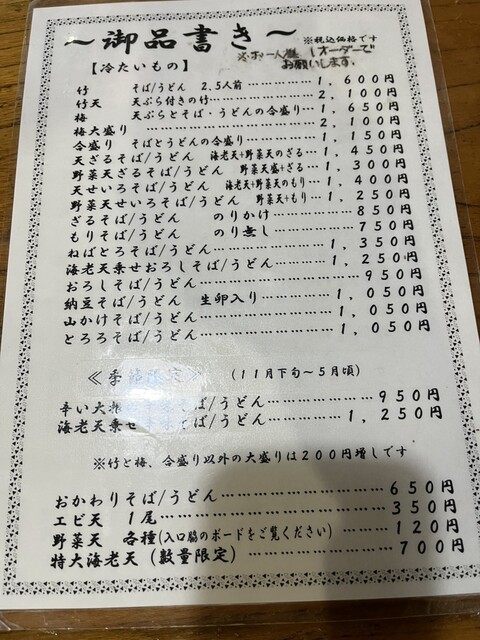 ～御品書き～
※税込価格です
※お一人様 1オーダーで
お願いします。
【冷たいもの】
竹 そば/うどん 2.5人前………1,600円
竹天 天ぷら付きの竹………2,100円
梅 天ぷらとそば・うどんの合盛り…1,650円
梅大盛り ………2,100円
合盛り そばとうどんの合盛り………1,150円
天ざるそば/うどん 海老天+野菜天のざる…1,450円
野菜天ざるそば/うどん 野菜天盛+ざる…1,300円
天せいろそば/うどん 海老天+野菜天のもり…1,400円
野菜天せいろそば/うどん 野菜天+もり…1,250円
ざるそば/うどん のりかけ………850円
もりそば/うどん のり無し………750円
ねばとろそば/うどん………1,350円
海老天乗せおろしそば/うどん………1,250円
おろしそば/うどん………950円
納豆そば/うどん 生卵入り………1,050円
山かけそば/うどん………1,050円
とろろそば/うどん………1,050円
≪季節限定≫ (11月下旬～5月頃)
辛い大根 そば/うどん………950円
海老天乗せ そば/うどん………1,250円
※竹と梅、合盛り以外の大盛りは200円増しです
おかわりそば/うどん………650円
エビ天 1尾………350円
野菜天 各種(入口脇のボードをご覧ください)………120円
特大海老天(数量限定)………700円